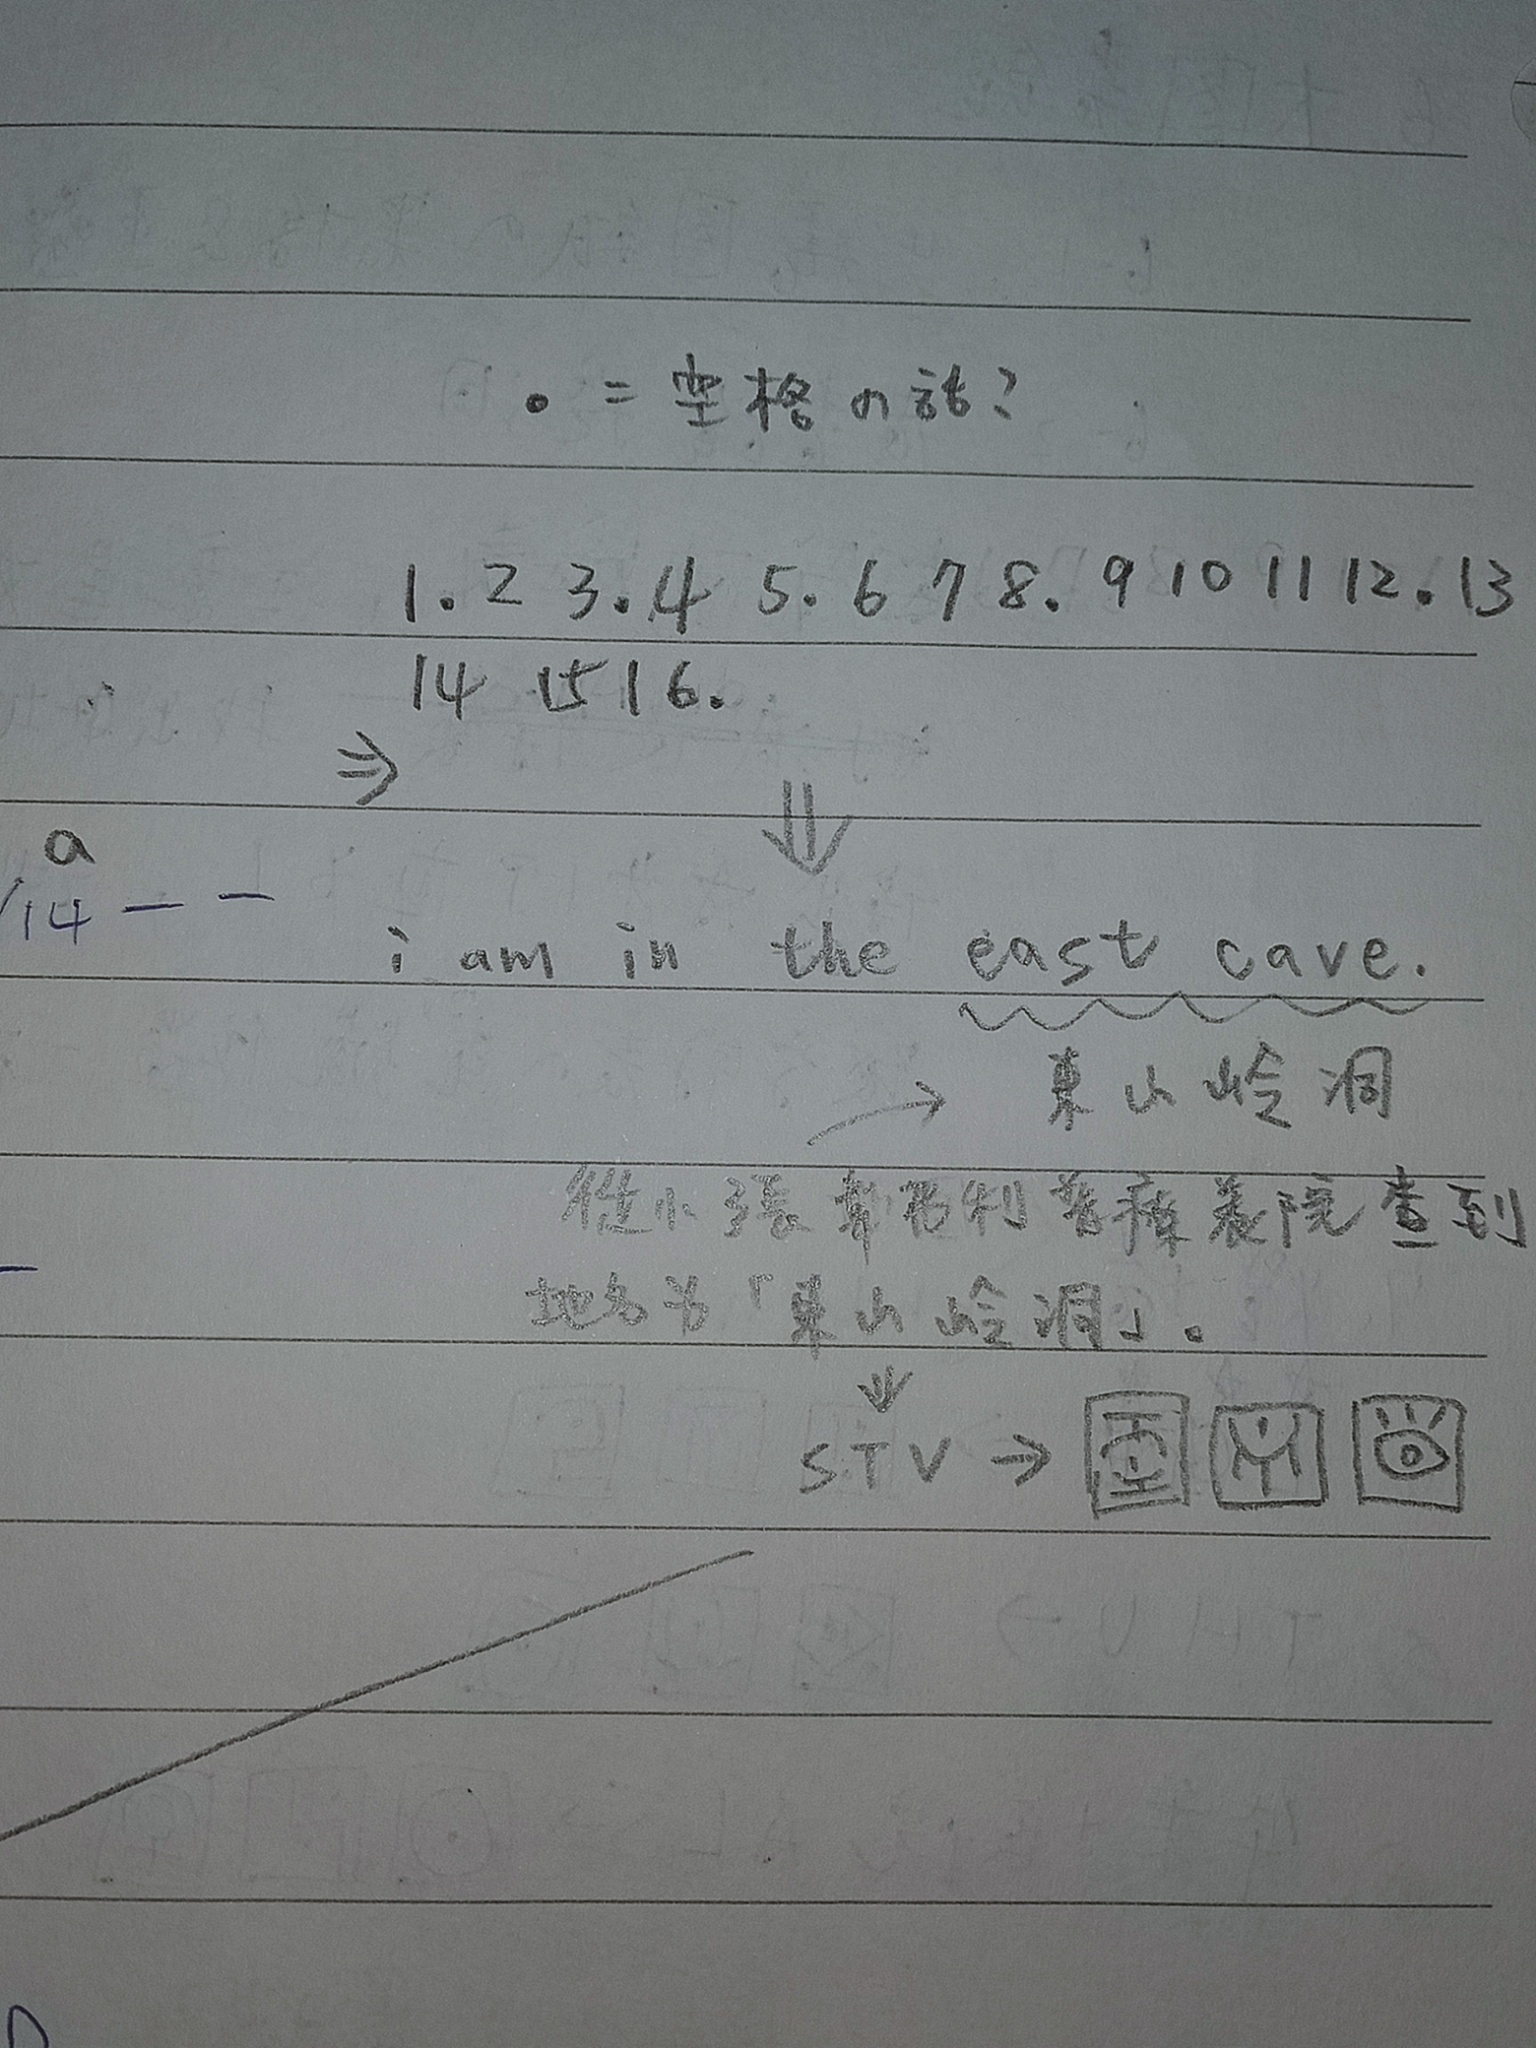 • = 空格の話?
1.2 3.4 5.6 7 8.9 10 11 12.13
14 15 16.
⇒
⇓
a
14 — —
i am in the east cave.
→ 東山岭洞
從小張 利 養院查到
地名为「東山岭洞」。
↓
STV →